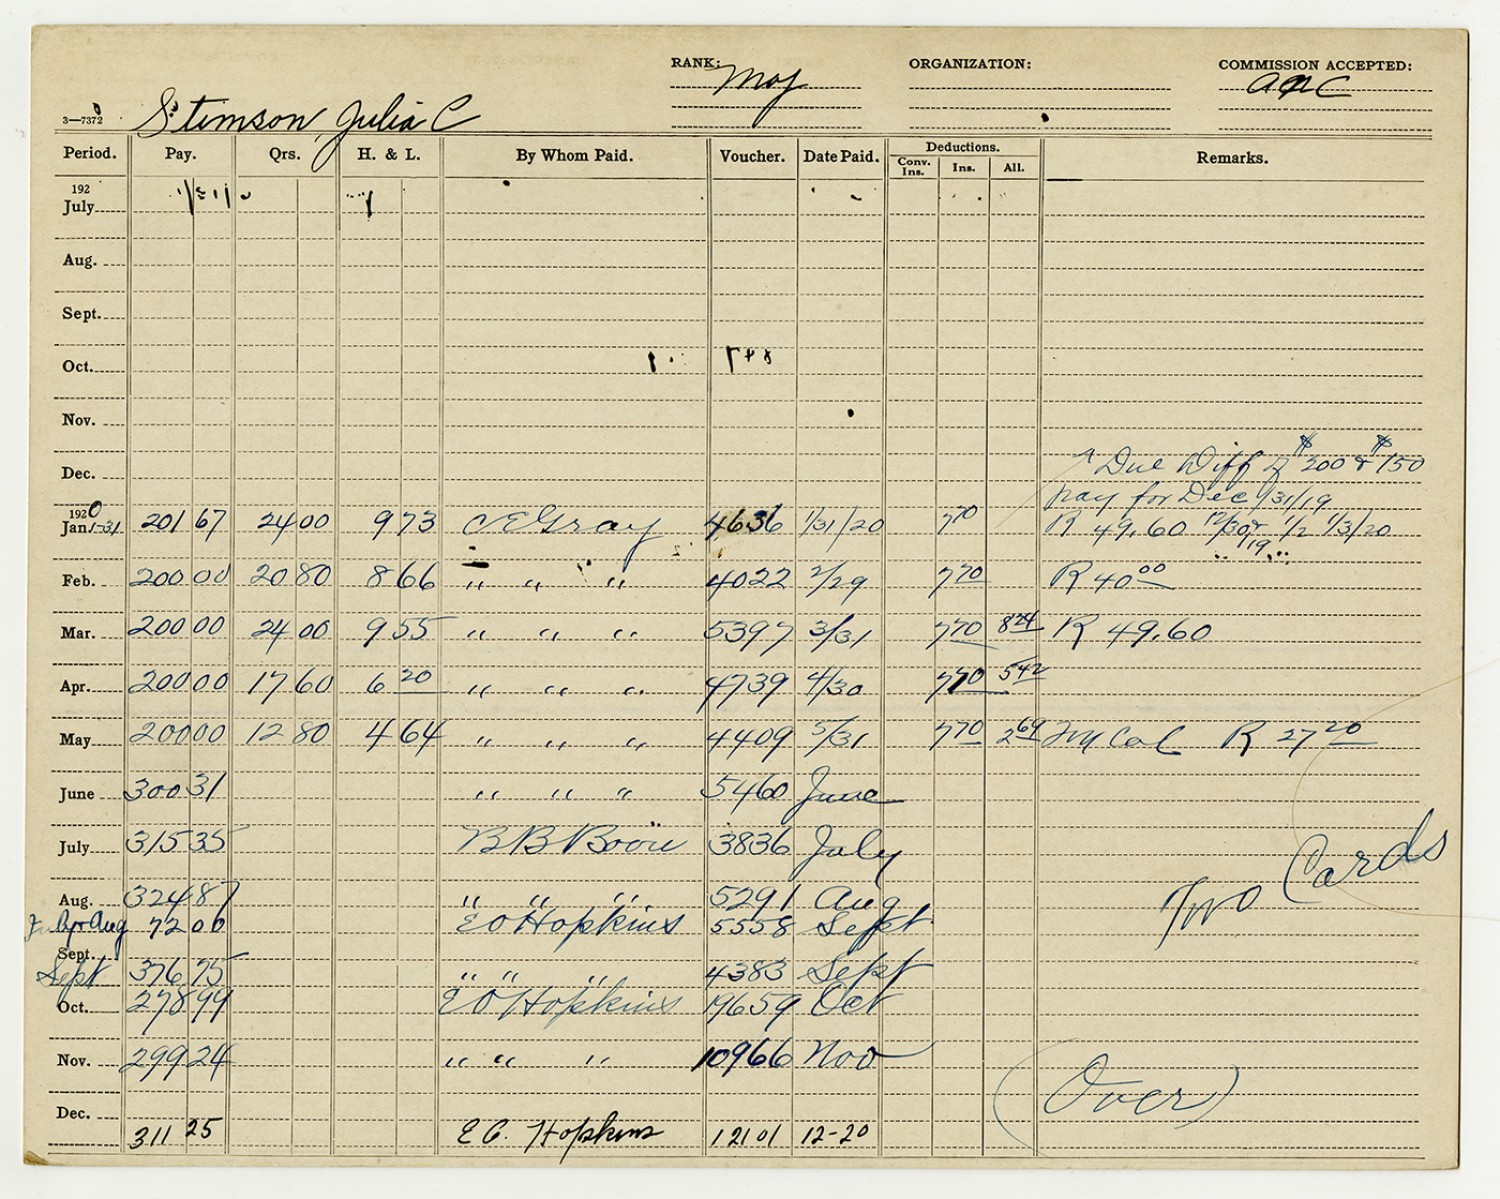 RANK: Maj ORGANIZATION: COMMISSION ACCEPTED:
ANC
3—7372 Stimson, Julia C
Period. Pay. Qrs. H. & L. By Whom Paid. Voucher. Date Paid. Deductions. Remarks.
Conv. Ins. Ins. All.
192
July
Aug.
Sept.
Oct.
Nov.
Dec. Due Diff $200 & $150
pay for Dec 1/31/19
1920
Jan. 1-31 201 67 24 00 9 73 C E Gray 4636 1/31/20 7 70 R 49.60 12/30 & 1/2 1/3/20
/19
Feb. 200 00 20 80 8 66 " " " 4022 2/29 7 70 R 40 00
Mar. 200 00 24 00 9 55 " " " 5397 3/31 7 70 8 24 R 49.60
Apr. 200 00 17 60 6 20 " " " 4739 4/30 7 70 5 42
May 200 00 12 80 4 64 " " " 4409 5/31 7 70 2 69 R 27 20
June 300 31 " " " 5460 June
July 315 35 B B 3836 July
Two Cards
Aug. 324 87 " " " 5291 Aug
Aug 72 00 E O Hopkins 5558 Sept
Sept.
Sept 376 75 " " " 4383 Sept
Oct. 278 99 E O Hopkins 19659 Oct
Nov. 299 24 " " " 10966 Nov
(Over)
Dec.
311 25 E O. Hopkins 12101 12-20